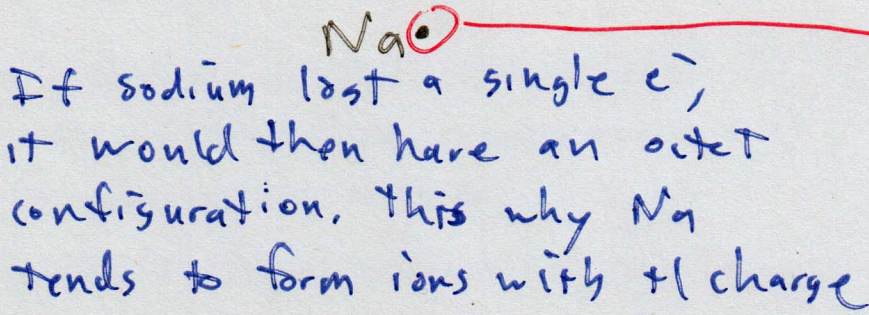 Na•
If sodium lost a single e⁻,
it would then have an octet
configuration. This why Na
tends to form ions with +1 charge